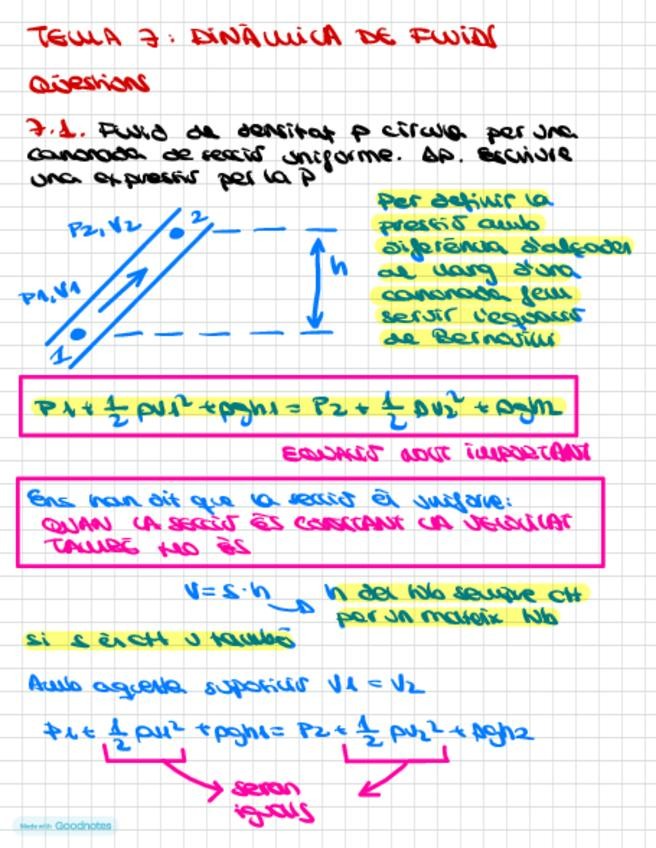 TEMA 7: DINÀMICA DE FLUIDS
Qüestions
7.1. Fluid de densitat ρ circula per una
canonada de secció uniforme. Δp. Escriure
una expressió per la P
P2, V2
2
P1, V1
1
h
Per definir la
pressió amb
diferència d'alçades
al llarg d'una
canonada fem
servir l'equació
de Bernoulli
P1 + 1/2 ρv1² + ρgh1 = P2 + 1/2 ρv2² + ρgh2
EQUACIÓ MOLT IMPORTANT
Ens han dit que la secció és uniforme:
QUAN LA SECCIÓ ÉS CONSTANT LA VELOCITAT
TAMBÉ HO ÉS
V = S · h
h del tub sempre ctt
per un mateix tub
si s és ctt v també
Amb aquesta suposició V1 = V2
P1 + 1/2 ρv1² + ρgh1 = P2 + 1/2 ρv2² + ρgh2
seran
iguals
Made with Goodnotes